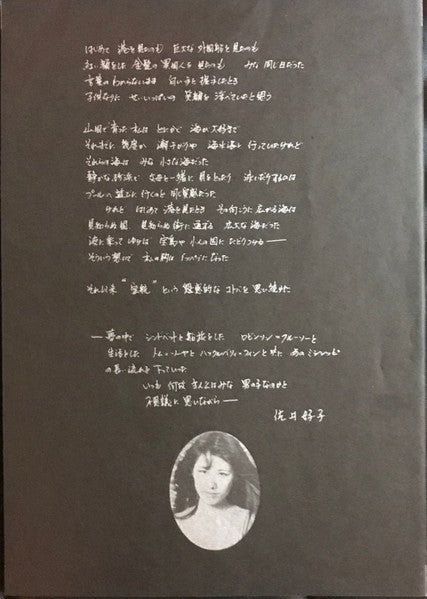 はじめて 港を見たのも 巨大な外国船を見たのも
紅い顔をした 金髪の異国人を 見たのも みな 同じ日だった
言葉のわからないまま 白い手と握手したとき
子供なりに せいいっぱいの 笑顔を 浮べていたと思う
山国で育った私は とにかく 海が大好きで
それまでに 幾度か 潮干がりや 海水浴に 行っていたけれど
それらの海は みな 小さな海だった
静かな砂浜で 父母と一緒に 貝をとったり 泳いだりするのは
プールへ 遊びに行くのと 同じ気持だった
けれど はじめて 港を見たとき その向こうに 広がる海は
見知らぬ国 見知らぬ街に通じる 広大な海だった
波に乗って ゆけば 宝島や 小人の国に たどりつける――
そういう想いで 私の胸は いっぱいになった
それ以来 “密航” という 魅惑的な コトバを 思い続けた
――夢の中で シンドバットと船旅をした ロビンソン=クルーソーと
生活をした トム=ソーヤと ハックルベリィ=フィンと共に あのミシシッピ
の長い流れを 下っていった
いつも 何故 主人公はみな 男の子なのかと
不思議に 思いながら――
佐井好子